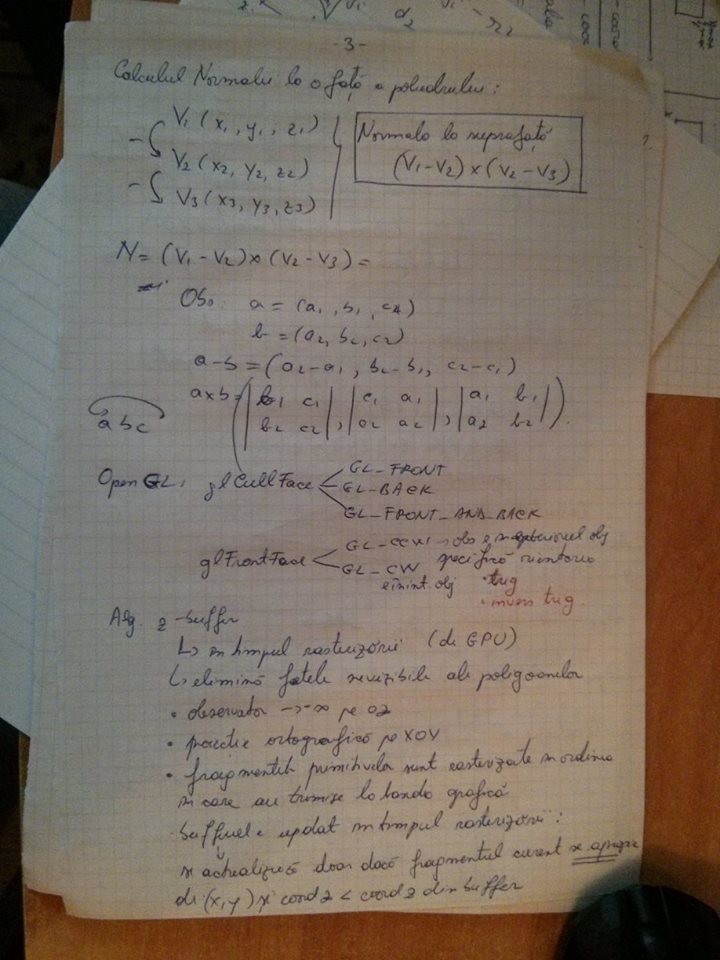 -3-
Calculul Normalei la o față a poliedrului:
V1 (x1, y1, z1)
V2 (x2, y2, z2)
V3 (x3, y3, z3)
Normala la suprafață
(V1-V2) x (V2-V3)
N = (V1-V2) x (V2-V3) =
Obs: a = (a1, b1, c1)
b = (a2, b2, c2)
a-b = (a2-a1, b2-b1, c2-c1)
axb = ( | b1 c1 | , | c1 a1 | , | a1 b1 | ).
b2 c2 c2 a2 a2 b2
abc
OpenGL: glCullFace
GL_FRONT
GL_BACK
GL_FRONT_AND_BACK
glFrontFace
GL_CCW obs e in exteriorul obj
GL_CW specifică orientarea
e în int. obj
• trig
• invers trig.
Alg. z-buffer
↳ în timpul rasterizării (de GPU)
↳ elimină fețele invizibile ale poligoanelor
• observator → -∞ pe oz
• proiecție ortografică pe XOY
• fragmentele primitivelor sunt rasterizate în ordinea
în care au trimise la banda grafică
bufferul e updat în timpul rasterizării:
se actualizează doar dacă fragmentul curent se apropie
de (x,y) și coord z < coord z din buffer